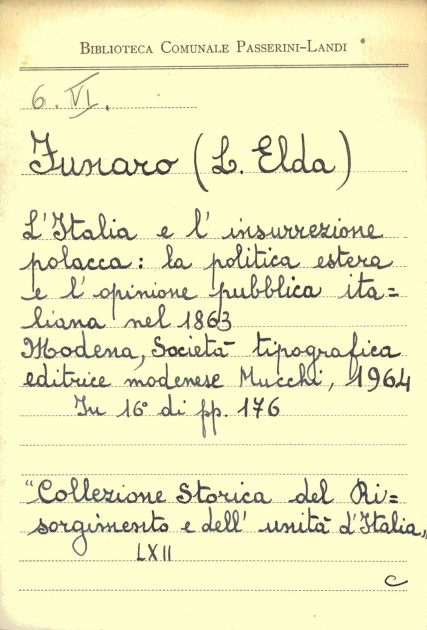 BIBLIOTECA COMUNALE PASSERINI-LANDI
6. VI.
Funaro (L. Elda)
L'Italia e l' insurrezione
polacca: la politica estera
e l' opinione pubblica ita=
liana nel 1863
Modena, Società tipografica
editrice modenese Mucchi, 1964
In 16° di pp. 176
"Collezione Storica del Ri=
sorgimento e dell' unità d'Italia„
LXII
C